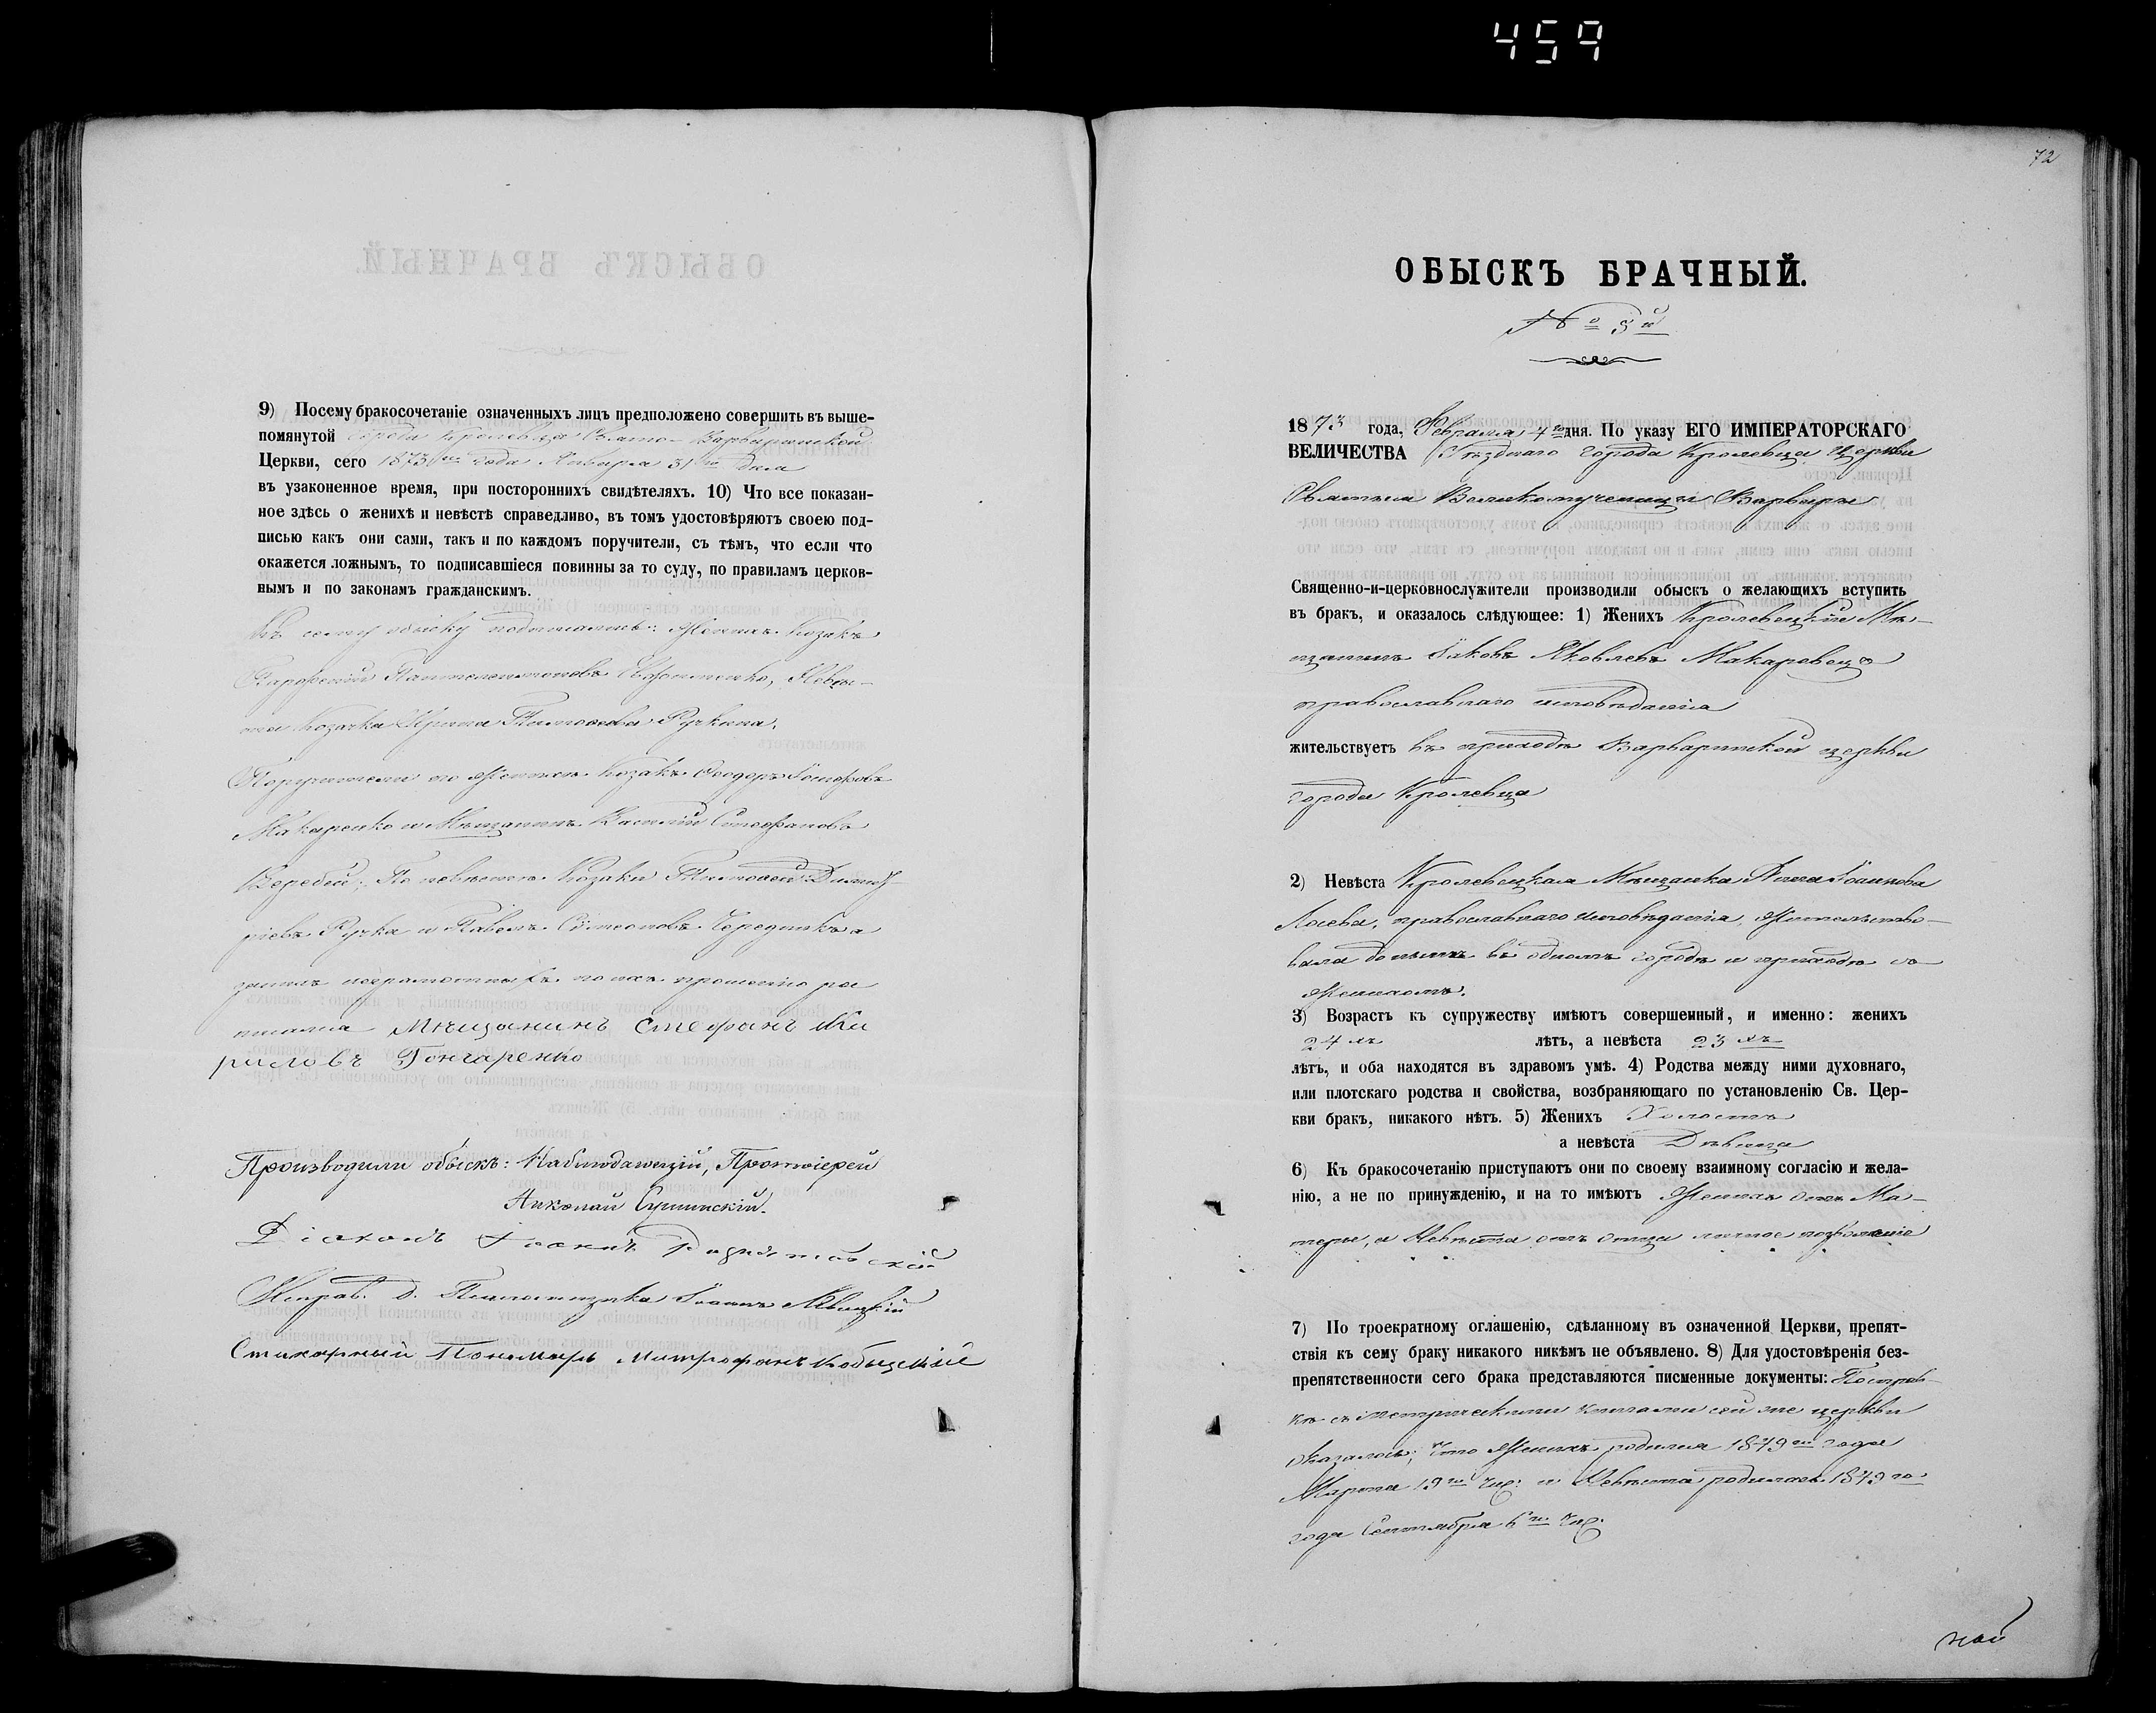 459
9) Посему бракосочетаніе означенныхъ лицъ предположено совершить въ выше-
помянутой города Кролевца Свято-Варваринской
Церкви, сего 1873го года Января 31го дня
въ узаконенное время, при постороннихъ свидѣтеляхъ. 10) Что все показан-
ное здѣсь о женихѣ и невѣстѣ справедливо, въ томъ удостовѣряютъ своею под-
писью какъ они сами, такъ и по каждомъ поручители, съ тѣмъ, что если что
окажется ложнымъ, то подписавшіеся повинны за то суду, по правиламъ церков-
нымъ и по законамъ гражданскимъ.
Къ сему обыску подписались: Женихъ Козакъ
Пантелеимоновъ Невѣс-
та Козачка Ирина Тимоѳеева Ручкина.
Поручители по женихѣ Козакъ Ѳеодоръ Іосифовъ
Макаренко и Мѣщанинъ Василій Стефановъ
Веребей; По невѣстѣ Козаки Тимоѳей Димит-
ріевъ Ручка и Павелъ Сѵмеоновъ а
за нихъ неграмотныхъ по ихъ прошенію рос
писался Мѣщанинъ Стефанъ Ки
риловъ Гончаренко
Производили обыскъ: Наблюдающій, Протоіерей
Николай
Діаконъ
Исправ. д. Псаломщика Іоаннъ Левицкій
Стихарный Пономарь Митрофанъ
72
ОБЫСКЪ БРАЧНЫЙ.
№ 5й
1873 года, Февраля 4го дня. По указу ЕГО ИМПЕРАТОРСКАГО
ВЕЛИЧЕСТВА Уѣзднаго города Кролевца Церкви
Святыя Великомученицы Варвары
Священно-и-церковнослужители производили обыскъ о желающихъ вступить
въ бракъ, и оказалось слѣдующее: 1) Женихъ Кролевецкій Мѣ-
щанинъ Іаковъ Яковлевъ Макаровецъ
православнаго исповѣданія
жительствуетъ въ приходѣ Варваринской церкви
города Кролевца
2) Невѣста Кролевецкая Мѣщанка Анна Іоаннова
Лосева, православнаго исповѣданія, жительство-
вала донынѣ въ одномъ городѣ и приходѣ съ
женихомъ.
3) Возрастъ къ супружеству имѣютъ совершенный, и именно: женихъ
24 лѣтъ, а невѣста 23
лѣтъ, и оба находятся въ здравомъ умѣ. 4) Родства между ними духовнаго,
или плотскаго родства и свойства, возбраняющаго по установленію Св. Цер-
кви бракъ, никакого нѣтъ. 5) Женихъ Холостъ
а невѣста Дѣвица
6) Къ бракосочетанію приступаютъ они по своему взаимному согласію и жела-
нію, а не по принужденію, и на то имѣютъ Женихъ отъ Ма-
тери, а Невѣста отъ отца личное позволеніе
7) По троекратному оглашенію, сдѣланному въ означенной Церкви, препят-
ствія къ сему браку никакого никѣмъ не объявлено. 8) Для удостовѣренія без-
препятственности сего брака представляются писменные документы: По справ-
кѣ съ метрическими книгами сей же церкви
оказалось; что Женихъ родился 1849го года
Марта 19го чис: и Невѣста родилась 1849го
года Сентября 6го чис.